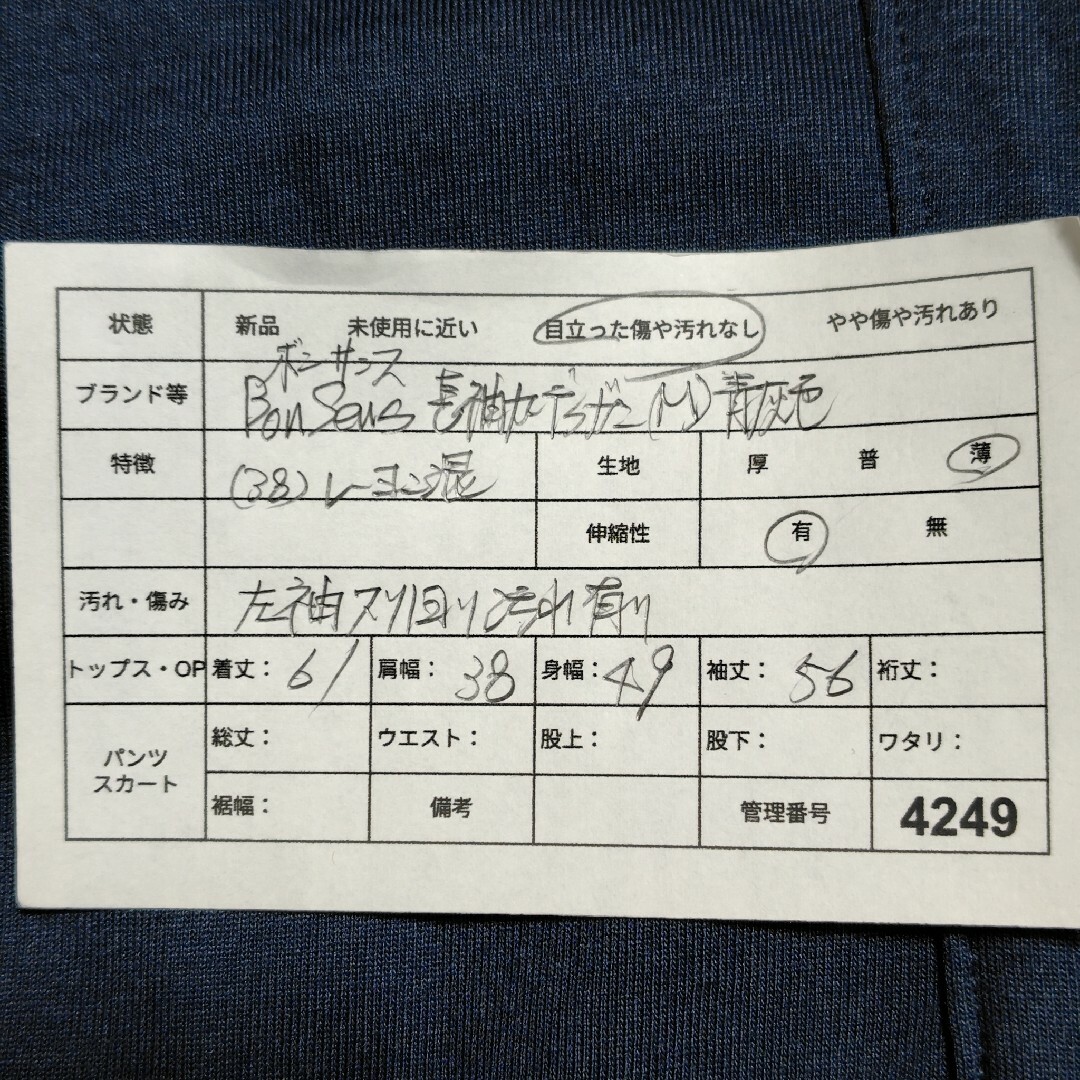 状態 新品 未使用に近い 目立った傷や汚れなし やや傷や汚れあり
ボンサンス
ブランド等 Bon Sens 長袖カーディガン(M) 青灰色
特徴 (38) レーヨン混 生地 厚 普 薄
伸縮性 有 無
汚れ・傷み 左袖 汚れ有り
トップス・OP 着丈: 61 肩幅: 38 身幅: 49 袖丈: 56 裄丈:
パンツ 総丈: ウエスト: 股上: 股下: ワタリ:
スカート 裾幅: 備考 管理番号 4249